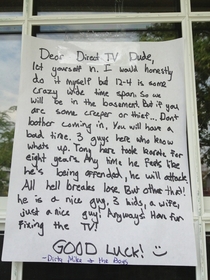 Dear Direct TV Dude,
let yourself in. I would honestly
do it myself but 12-4 is some
crazy wide time span. So we
will be in the basement. But if you
are some creeper or thief... Dont
bother coming in, You will have a
bad time. 3 guys here who know
whats up. Tony here took Karate for
eight years. Any time he feels like
he's being offended, he will attack.
All hell breaks lose. But other than that!
he is a nice guy, 3 kids, a wife,
just a nice guy! Anyways Have fun
fixing the TV!
GOOD LUCK!
- Dirty Mike + the Boys